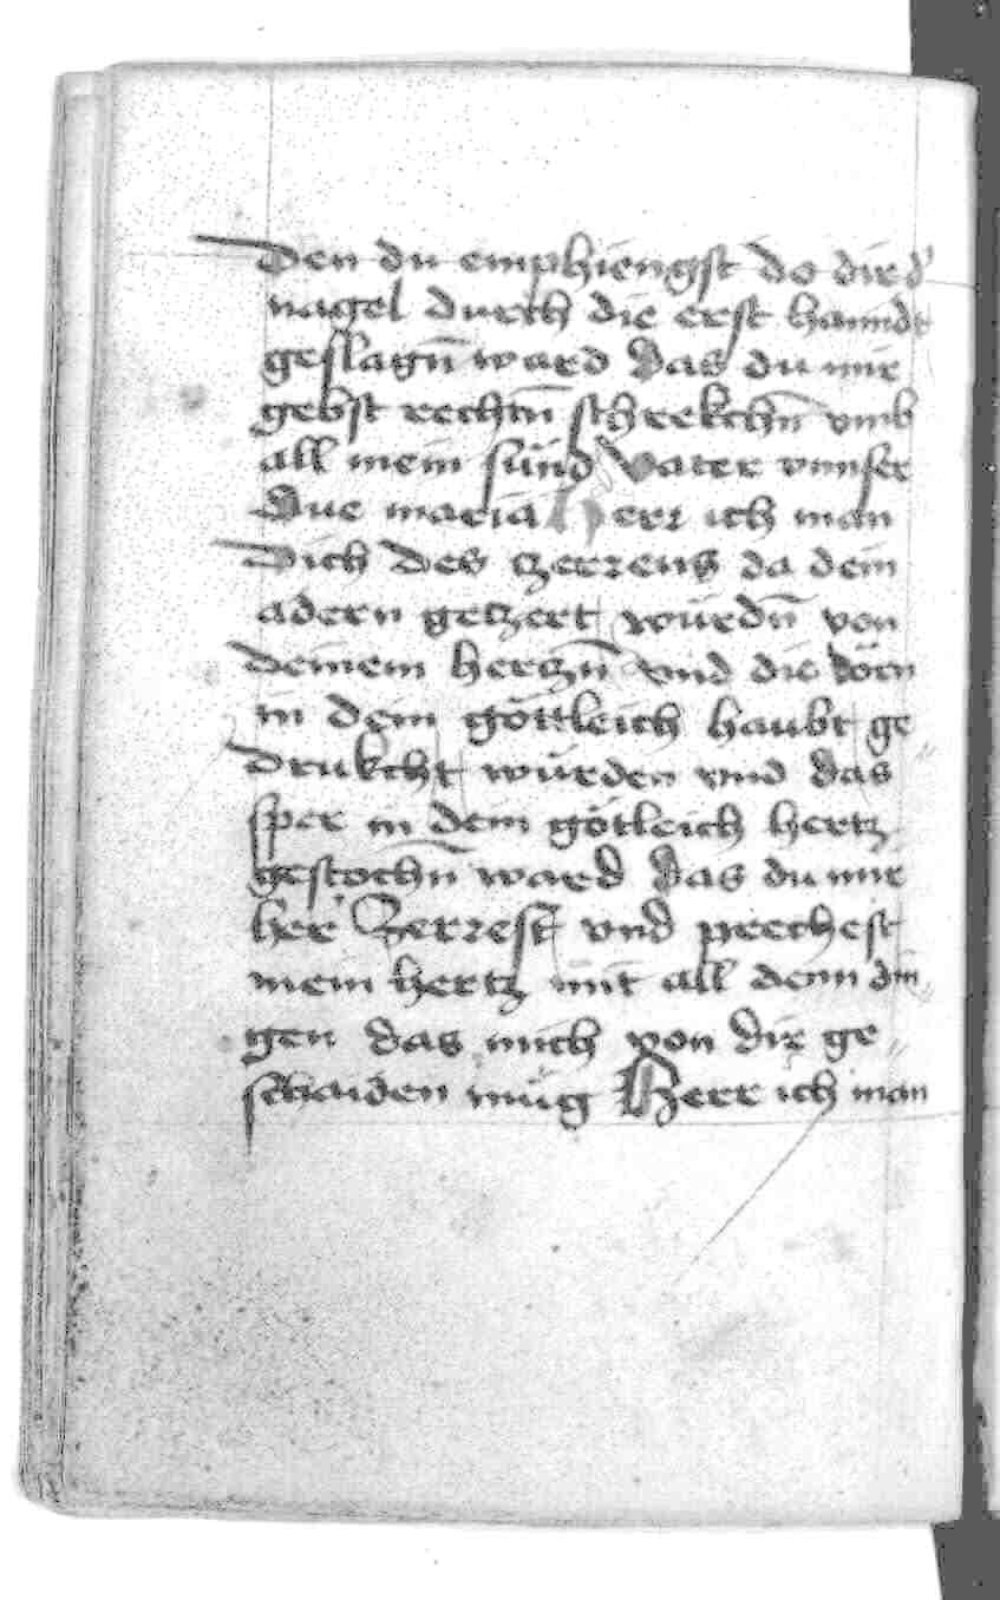 Den du emphiengst do dir d'
nagel durch die erst hanndt
geslagn̄ ward Das du mir
gebst rechtn̄ schrekchn̄ vmb
all mein sünd Vater vnnser
Aue maria Herr ich man
Dich des zerrens da dein
adern geczert würdn̄ von
deinem herczn̄ vnd die dörn
in dein göttleich haubt ge
drukcht würden vnd das
sper in dein götleich hertz
gestochn̄ ward Das du mir
her Zerrest vnd prechest
mein hertz mit all denn din
gen das mich von dir ge
schaiden müg Herr ich man